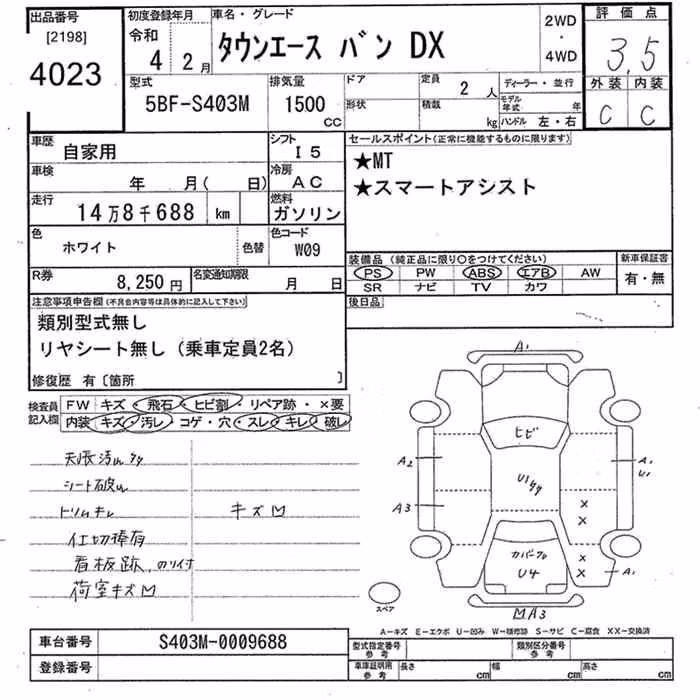 出品番号
[2198]
4023
初度登録年月
令和
4 2月
車名・グレード
タウンエース バン DX
2WD
・
4WD
評価点
3.5
外装 内装
C C
型式
5BF-S403M
排気量
1500
CC
ドア
形状
定員
2 人
積載
kg
ディーラー・並行
モデル年式 年
ハンドル 左・右
車歴
自家用
シフト
I5
車検
年 月( 日)
冷房
AC
走行
14万8千688 km
燃料
ガソリン
色
ホワイト
色替
色コード
W09
R券
8,250円
名変通知期限
月 日
セールスポイント(正常に機能するものに限ります)
★MT
★スマートアシスト
装備品(純正品に限り○をつけてください)
PS PW ABS エアB AW
SR ナビ TV カワ
新車保証書
有・無
後日品
注意事項申告欄(不具合内容等は具体的に記入して下さい)
類別型式無し
リヤシート無し(乗車定員2名)
修復歴 有〔箇所 〕
検査員記入欄
FW キズ・飛石・ヒビ割・リペア跡・×要
内装 キズ・汚レ・コゲ・穴・スレ・キレ・破レ
天張汚レ
シート破レ
トリムキレ
キズM
仕切棒有
看板跡、のり付
荷室キズM
A1
ヒビ
A2
A3
A1
U1
U1
×
×
×
×
カバーフル
U4
A1
MA3
スペア
A-キズ E-エクボ U-凹み W-補修跡 S-サビ C-腐食 XX-交換済
車台番号
S403M-0009688
登録番号
型式指定番号
参考
類別区分番号
参考
車庫証明用
参考
長さ cm
幅 cm
高さ cm